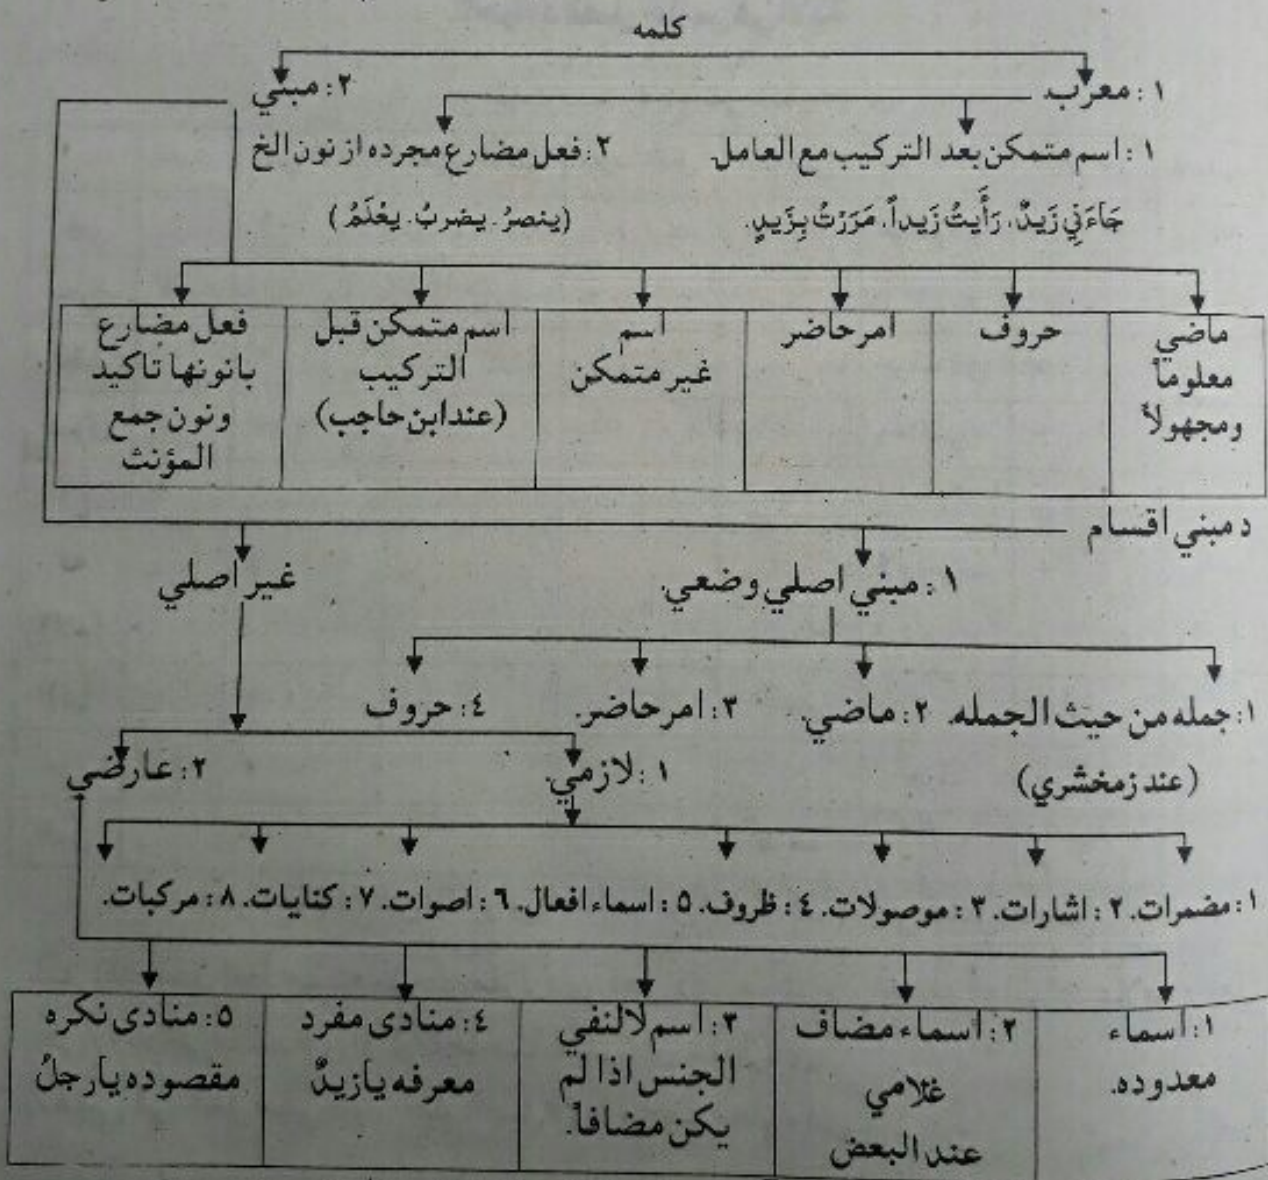 كلمه
١: معرب
٢: مبني
١: اسم متمكن بعد التركيب مع العامل.
٢: فعل مضارع مجرده از نون الخ
جَاءَنِي زَيدٌ. رَأَيتُ زَيداً. مَرَرْتُ بِزَيدٍ.
(ينصرُ. يضربُ. يعْلَمُ)
ماضي
معلوماً
ومجهولاً
حروف
امر حاضر
اسم
غير متمكن
اسم متمكن قبل
التركيب
(عند ابن حاجب)
فعل مضارع
بانونها تاكيد
ونون جمع
المؤنث
د مبني اقسام
١: مبني اصلي وضعي.
غير اصلي
١: جمله من حيث الجمله. ٢: ماضي. ٣: امر حاضر. ٤: حروف
(عند زمخشري)
١: لازمي.
٢: عارضي
١: مضمرات. ٢: اشارات. ٣: موصولات. ٤: ظروف. ٥: اسماء افعال. ٦: اصوات. ٧: كنايات. ٨: مركبات.
١: اسماء
معدوده.
٢: اسماء مضاف
غلامي
عند البعض
٣: اسم لالنفي
الجنس اذا لم
يكن مضافاً.
٤: منادى مفرد
معرفه يا زيدٌ
٥: منادى نكره
مقصوده يا رجلُ